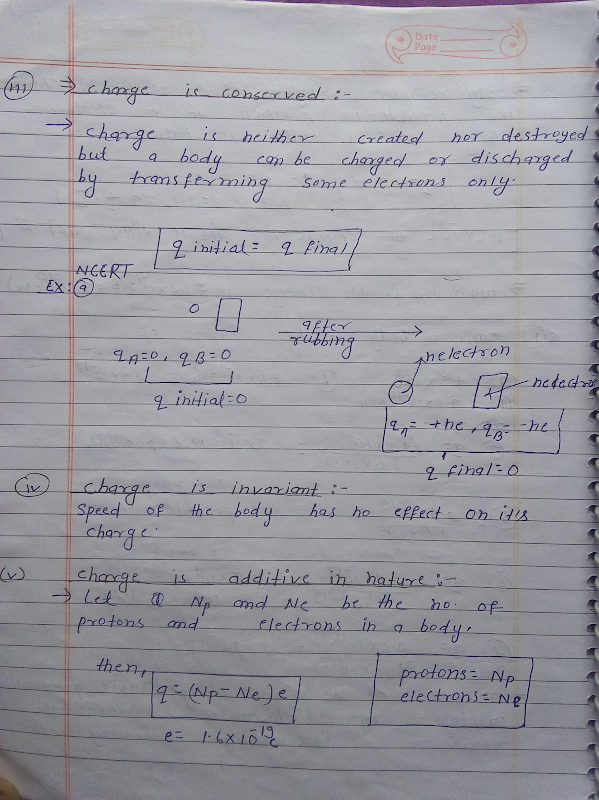 Date
Page
(iii) ⇒ charge is conserved :-
→ charge is neither created nor destroyed
but a body can be charged or discharged
by transferming some electrons only.
q initial = q final
NCERT
Ex: (a)
after
rubbing
qA=0, qB=0
q initial=0
nelectron
qA= +ne, qB= -ne
q final=0
(iv) charge is invariant :-
speed of the body has no effect on it's
charge.
(v) charge is additive in nature :-
→ Let Np and Ne be the no. of
protons and electrons in a body.
then,
q = (Np - Ne) e
e= 1.6×10⁻¹⁹c
protons= Np
electrons= Ne